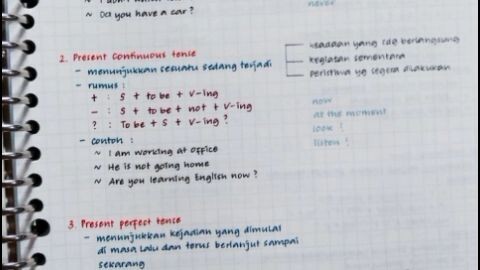 ~ Do you have a car ?
never
2. Present continuous tense
- menunjukkan sesuatu sedang terjadi
keadaan yang sdg berlangsung
kegiatan sementara
peristiwa yg segera dilakukan
- rumus :
+ : S + to be + V-ing
- : S + to be + not + V-ing
? : To be + S + V-ing ?
now
at the moment
look !
listen !
- contoh :
~ I am working at office
~ He is not going home
~ Are you learning English now ?
3. Present perfect tence
- menunjukkan kejadian yang dimulai
di masa lalu dan terus berlanjut sampai
sekarang